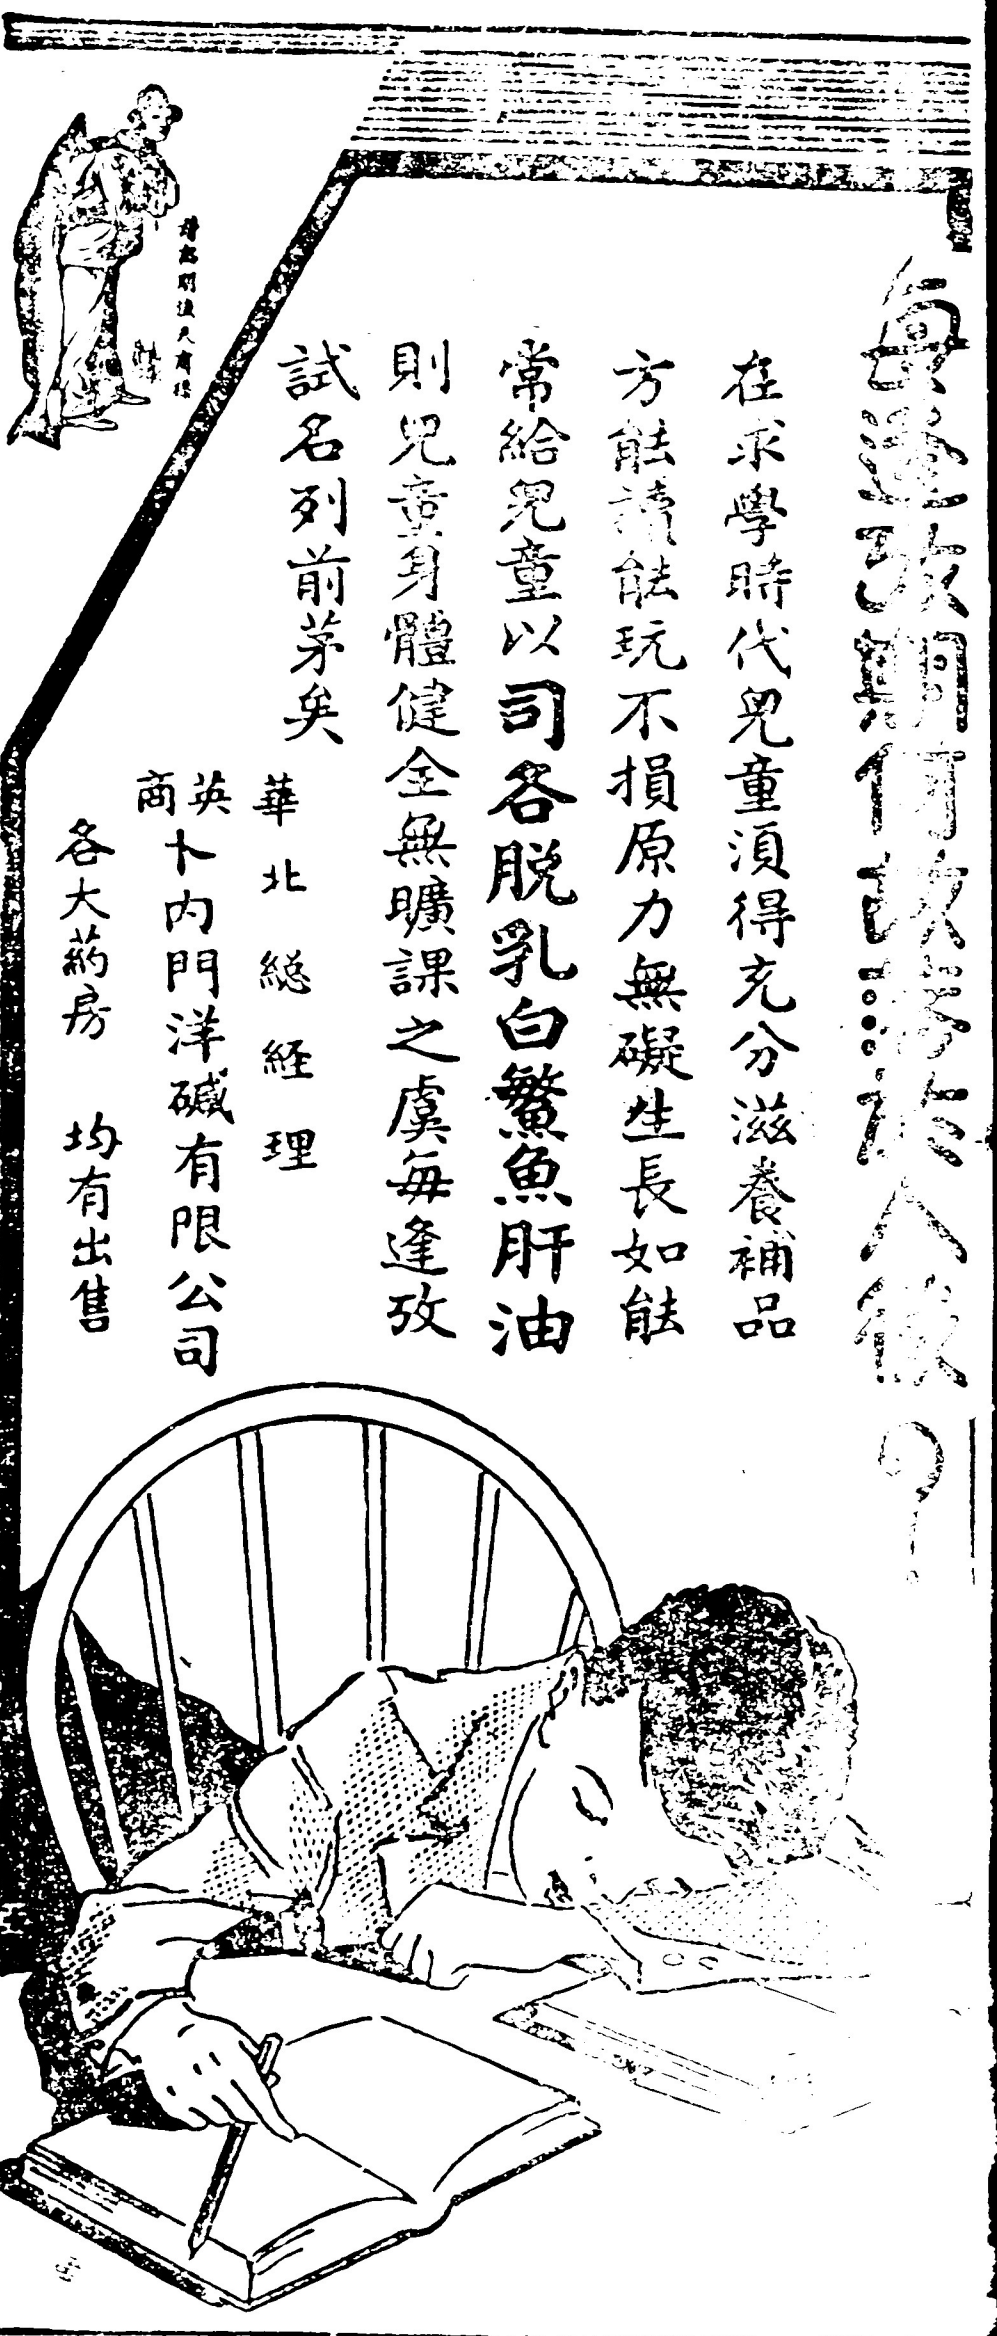 每逢攷期何故落於人後？
在求學時代兒童須得充分滋養補品
方能讀能玩不損原力無礙生長如能
常給兒童以司各脫乳白鰵魚肝油
則兒童身體健全無曠課之虞每逢攷
試名列前茅矣
華北總経理
英商卜內門洋碱有限公司
各大葯房 均有出售
請認明漁夫商標